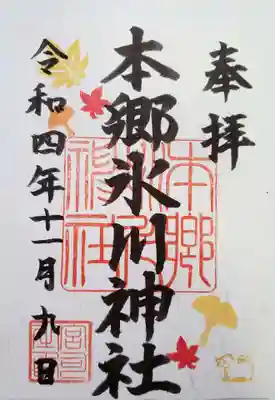 奉拝
本郷氷川神社
令和四年十一月九日
本郷氷川神社